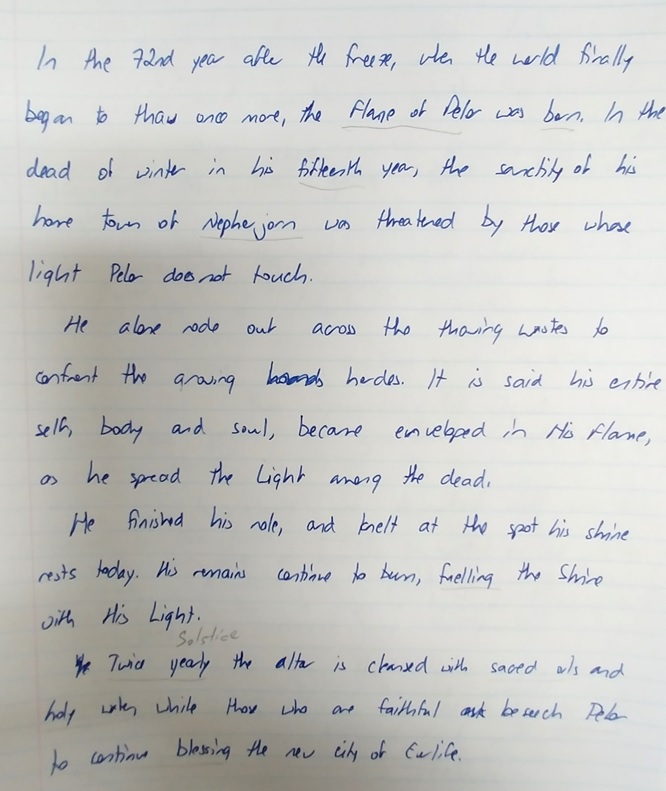 In the 72nd year after the freeze, when the world finally
began to thaw once more, the Flame of Pelor was born. In the
dead of winter in his fifteenth year, the sanctity of his
home town of Nepherjorn was threatened by those whose
light Pelor does not touch.
He alone rode out across the thawing wastes to
confront the growing hordes. It is said his entire
self, body and soul, became enveloped in His Flame,
as he spread the Light among the dead.
He finished his role, and knelt at the spot his shrine
rests today. His remains continue to burn, fuelling the Shrine
with His Light.
Solstice
Twice yearly the altar is cleansed with sacred oils and
holy water while those who are faithful ask beseech Pelor
to continue blessing the new city of